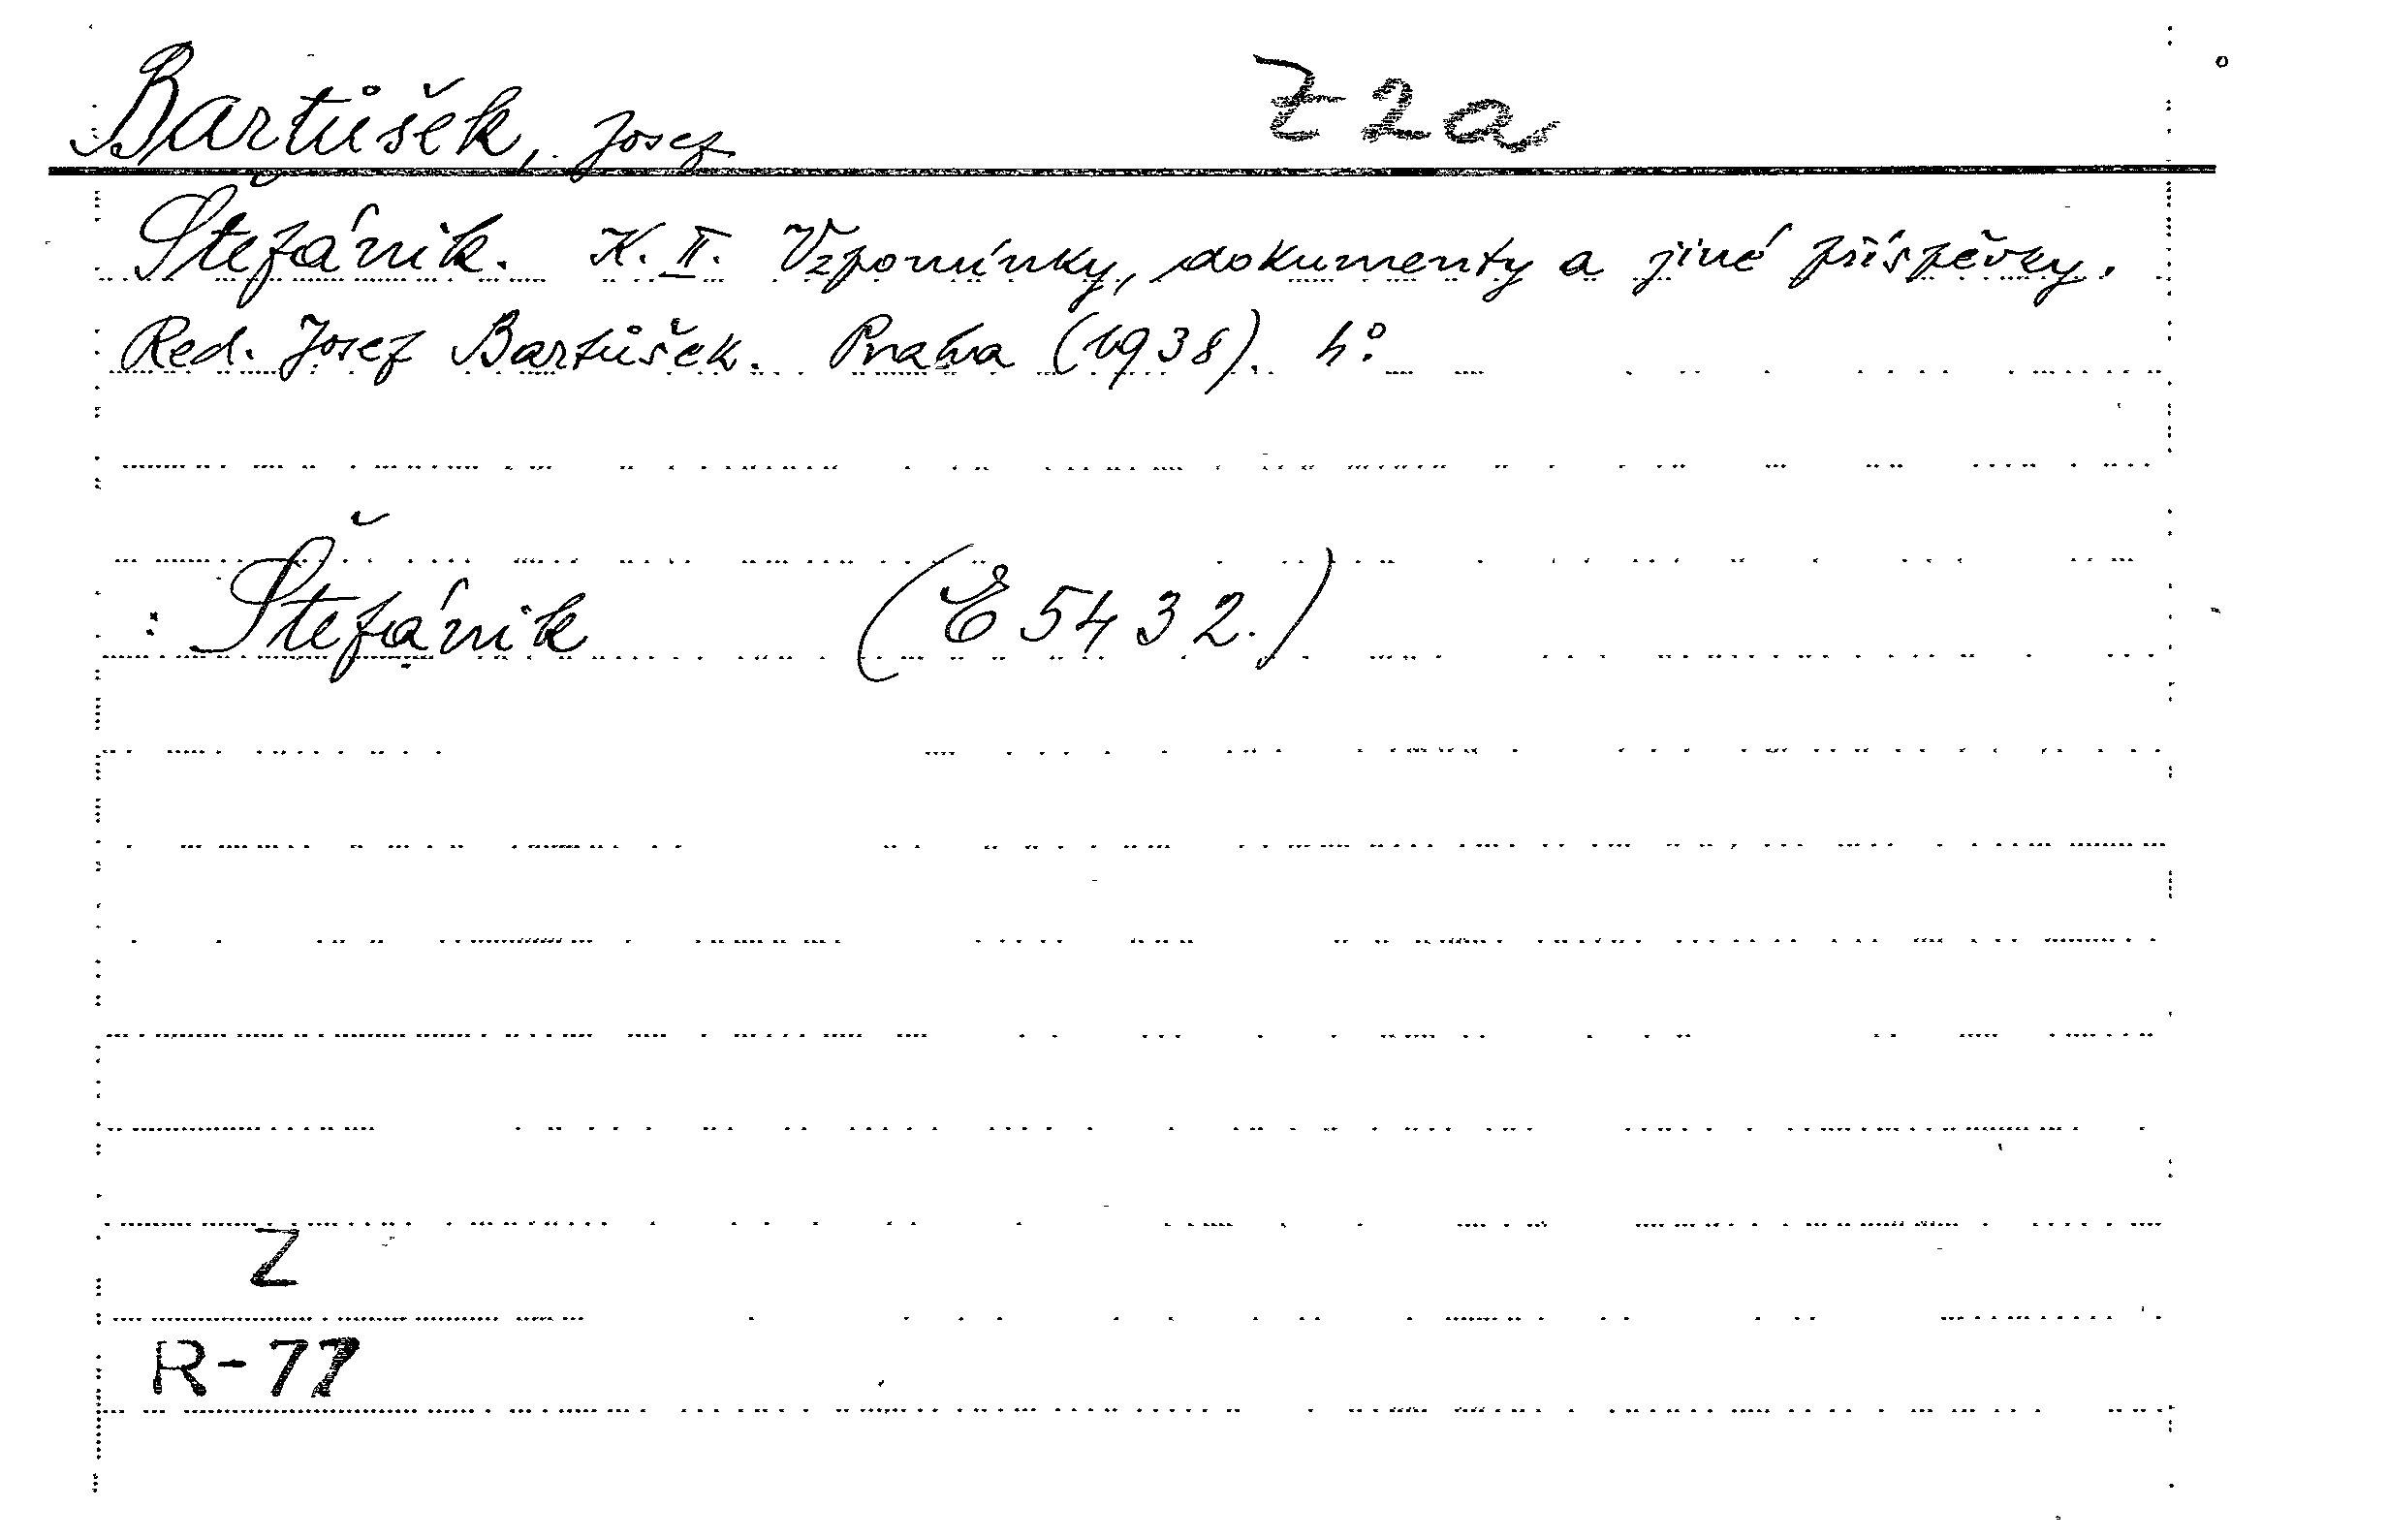 Bartůšek, Josef Z 2a
Štefánik. K. II. Vzpomínky, dokumenty a jiné příspěvky.
Red. Josef Bartůšek. Praha (1938). 4°.
: Štefánik (E 5432.)
Z
R-77